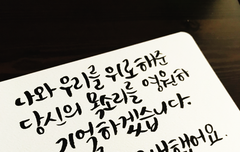 나와 우리를 위로해준
당신의 목소리를 영원히
기억하겠습니다.
했어요.